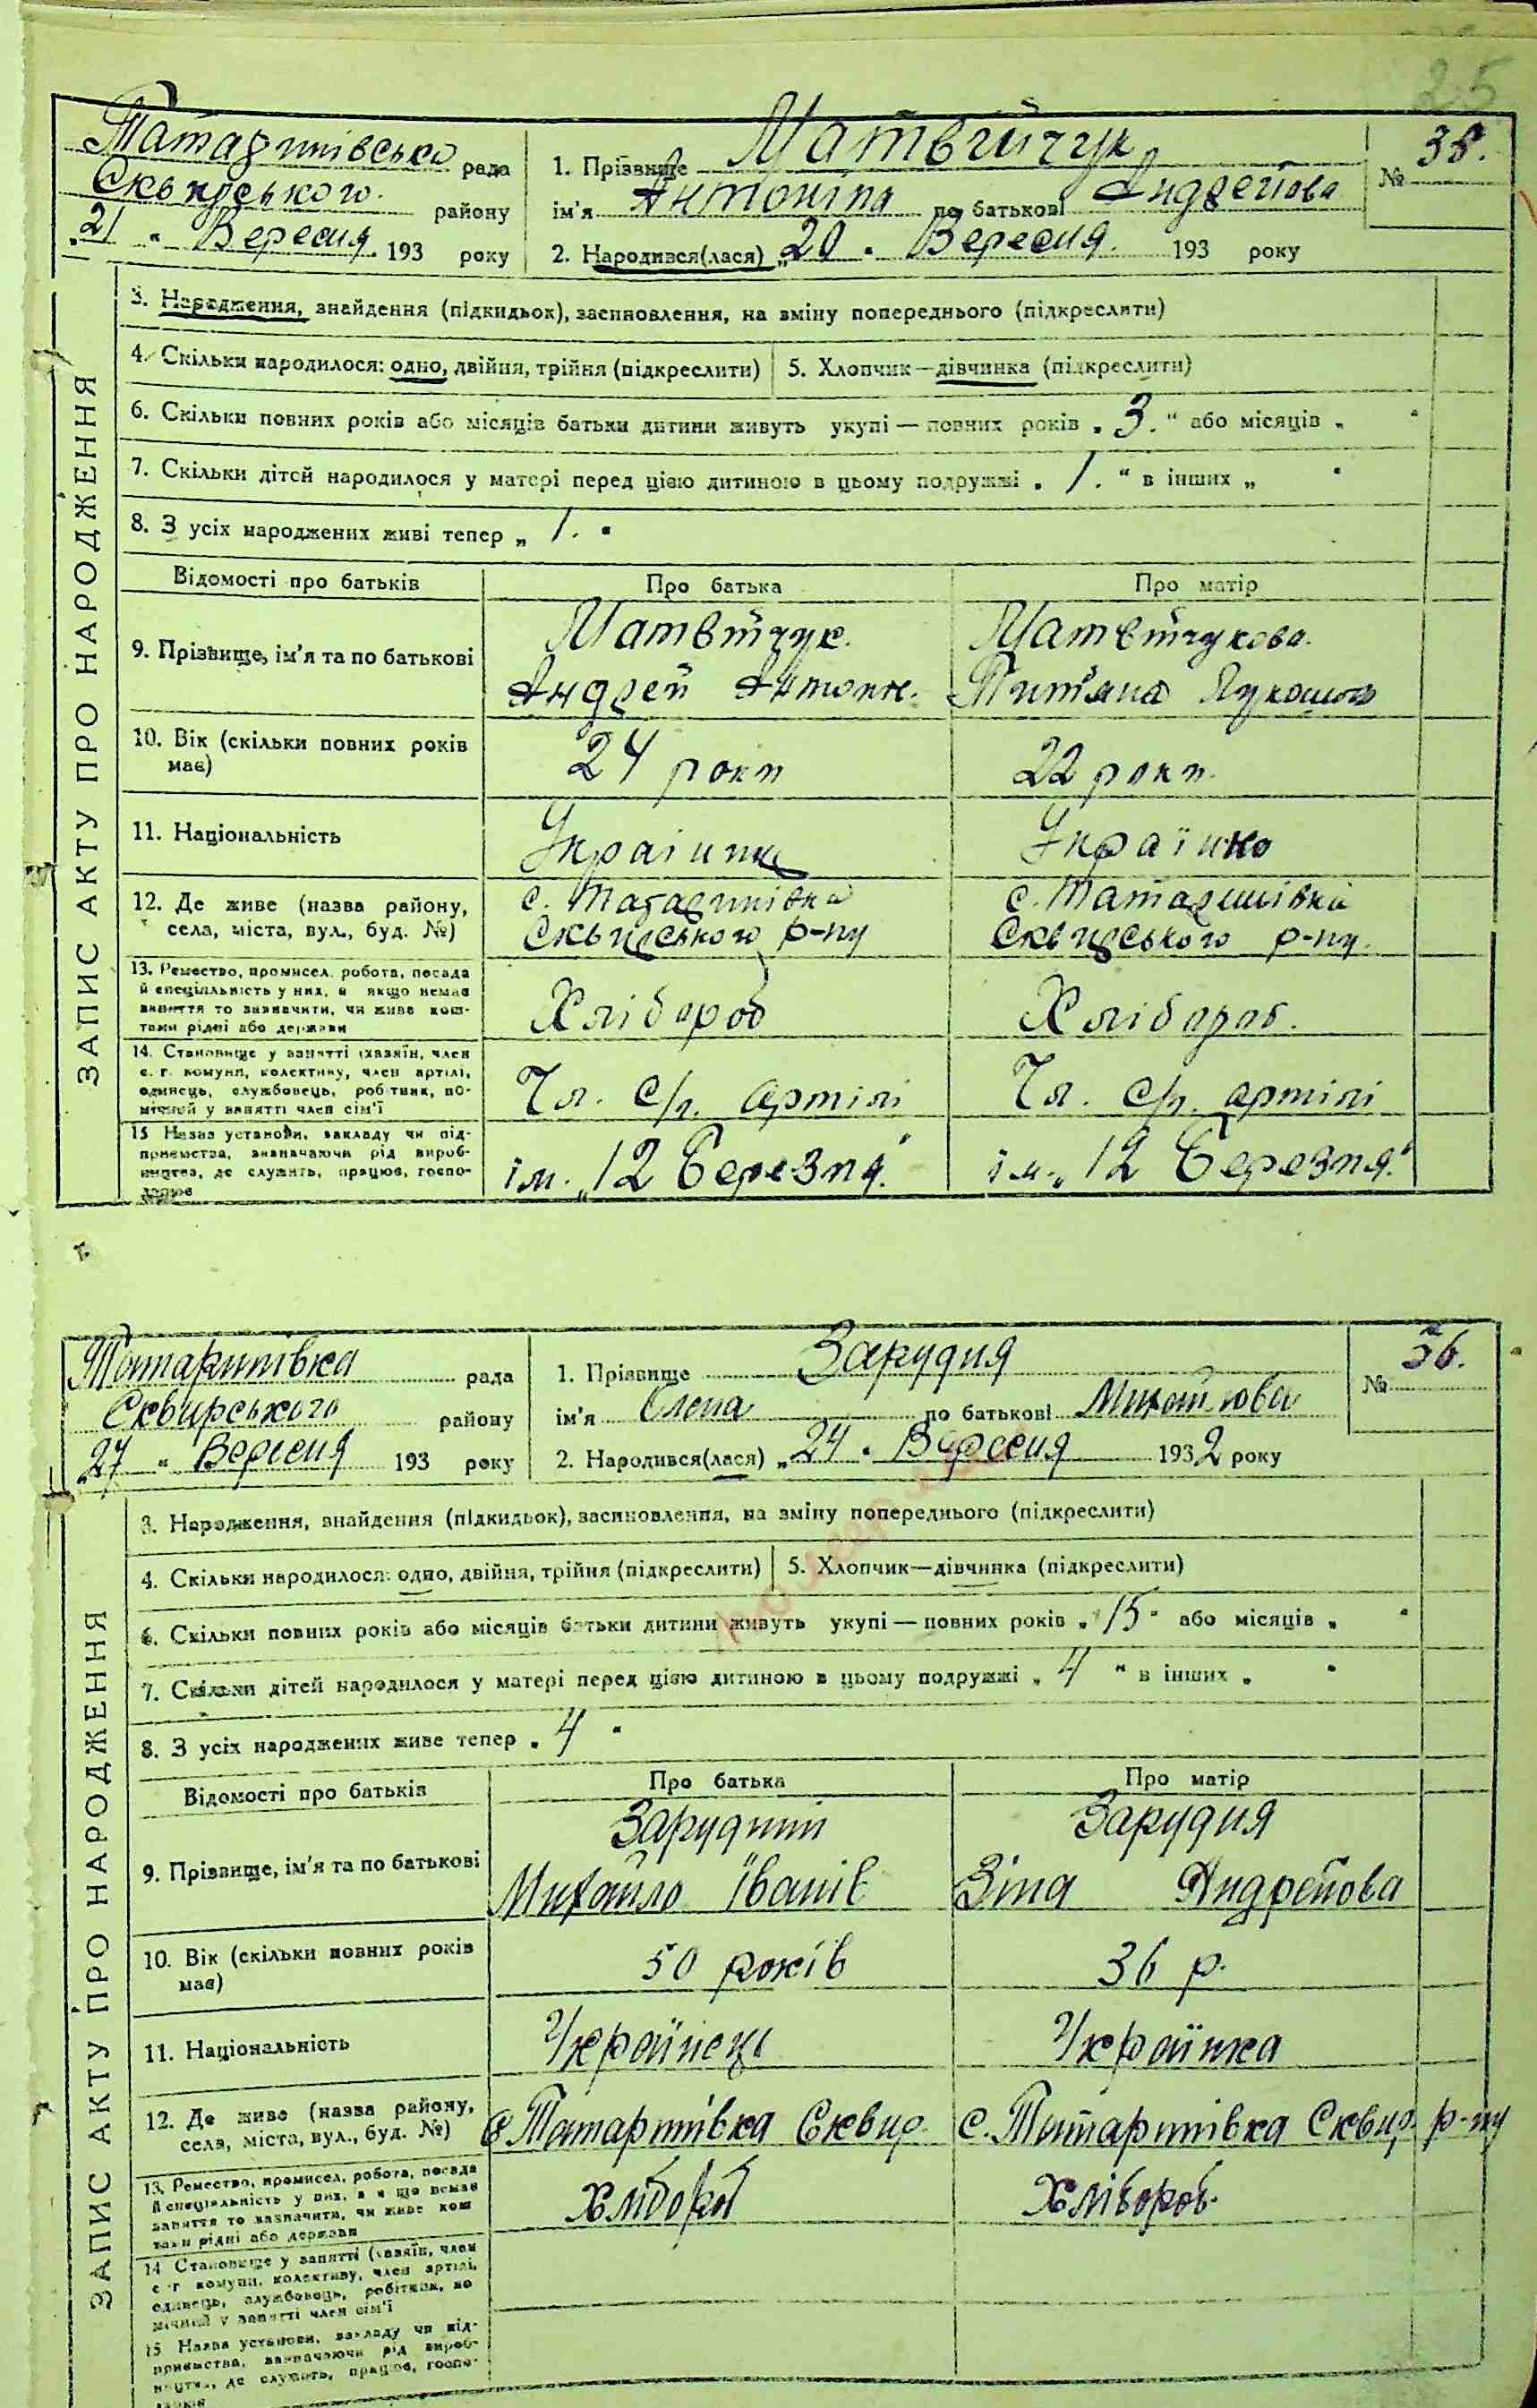 25
Татаринівсько рада
Сквирського району
„21 " Вересня 193 року
1. Прізвище Матвійчук
ім'я Антоніна по батькові Андреїова
2. Народився(лася) „20 " Вересня 193 року
№ 35.
ЗАПИС АКТУ ПРО НАРОДЖЕННЯ
3. Народження, знайдення (підкидьок), засиновлення, на зміну попереднього (підкреслити)
4. Скільки народилося: одно, двійня, трійня (підкреслити) 5. Хлопчик—дівчинка (підкреслити)
6. Скільки повних років або місяців батьки дитини живуть укупі — повних років „ 3. " або місяців „ "
7. Скільки дітей народилося у матері перед цією дитиною в цьому подружжі „ 1. " в інших „ "
8. З усіх народжених живі тепер „ 1. "
Відомості про батьків Про батька Про матір
9. Прізвище, ім'я та по батькові
Матвійчук. Матвійчукова.
Андрей Антон. Титяна
10. Вік (скільки повних років має) 24 роки 22 роки.
11. Національність Українка
12. Де живе (назва району, села, міста, вул., буд. №)
с. Татаринівка с. Татаринівка
Сквирського р-ну Сквирського р-ну.
13. Ремество, промисел, робота, посада й спеціяльність у них, а якщо немає заняття то зазначити, чи живе коштами рідні або держави
Хлібороб Хлібороб.
14. Становище у занятті (хазяїн, член с. г. комуни, колективу, член артілі, одинець, службовець, робітник, помічний у занятті член сім'ї
Чл. с/г. артілі Чл. с/г. артілі
15 Назва установи, закладу чи підприємства, зазначаючи рід виробництва, де служить, працює, господарює
ім. „12 Березня." ім. „12 Березня."
Татаринівка рада
Сквирського району
„27 " Вересня 193 року
1. Прізвище Зарудня
ім'я Олена по батькові Михайлова
2. Народився(лася) „24 " Вересня 1932 року
№ 36.
ЗАПИС АКТУ ПРО НАРОДЖЕННЯ
3. Народження, знайдення (підкидьок), засиновлення, на зміну попереднього (підкреслити)
4. Скільки народилося: одно, двійня, трійня (підкреслити) 5. Хлопчик—дівчинка (підкреслити)
6. Скільки повних років або місяців батьки дитини живуть укупі — повних років „ 15 " або місяців „ "
7. Скільки дітей народилося у матері перед цією дитиною в цьому подружжі „ 4 " в інших „ "
8. З усіх народжених живе тепер „ 4 "
Відомості про батьків Про батька Про матір
9. Прізвище, ім'я та по батькові
Зарудний Зарудня
Михайло Іванів Зіна Андреїова
10. Вік (скільки повних років має) 50 років 36 р.
11. Національність Українець Українка
12. Де живе (назва району, села, міста, вул., буд. №)
с. Татаринівка Сквир. с. Татаринівка Сквир. р-ну
13. Ремество, промисел, робота, посада й спеціяльність у них, а якщо немає заняття то зазначити, чи живе коштами рідні або держави
Хлібороб Хлібороб.
14 Становище у занятті (хазяїн, член с г комуни, колективу, член артілі, одинець, службовець, робітник, помічний у занятті член сім'ї
15 Назва установи, закладу чи підприємства, зазначаючи рід виробництва, де служить, працює, господарює